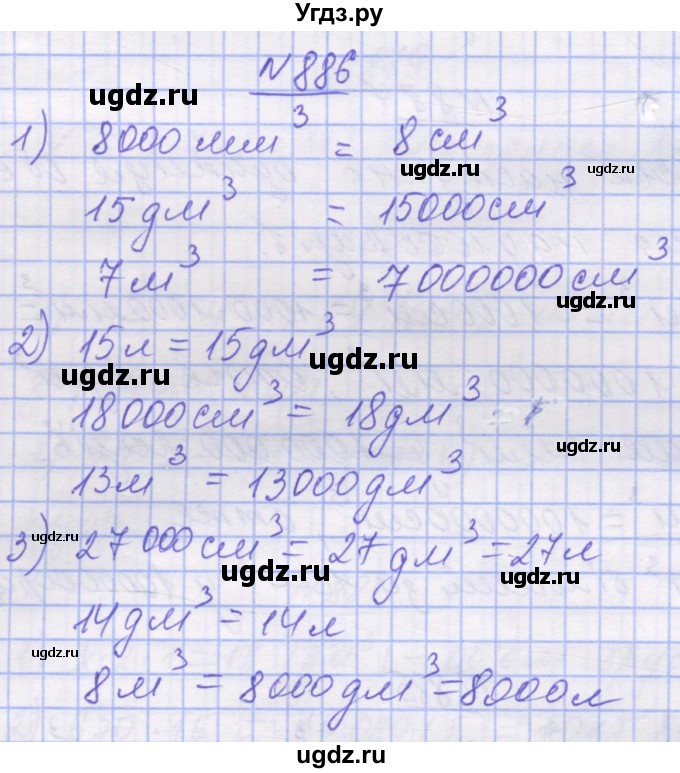 Угдз.ру
N 886
ugdz.ru
1) 8000 мм³ = 8 см³
ugdz.ru ugdz.ru
15 дм³ = 15000 см³
7 м³ = 7 000000 см³
ugdz.ru
2) 15 л = 15 дм³
ugdz.ru
ugdz.ru
18 000 см³ = 18 дм³
ugdz.ru
13 м³ = 13000 дм³
ugdz.ru
3) 27 000 см³ = 27 дм³ = 27 л
ugdz.ru ugdz.ru
14 дм³ = 14 л
ugdz.ru
8 м³ = 8000 дм³ = 8000 л
ugdz.ru
ugdz.ru